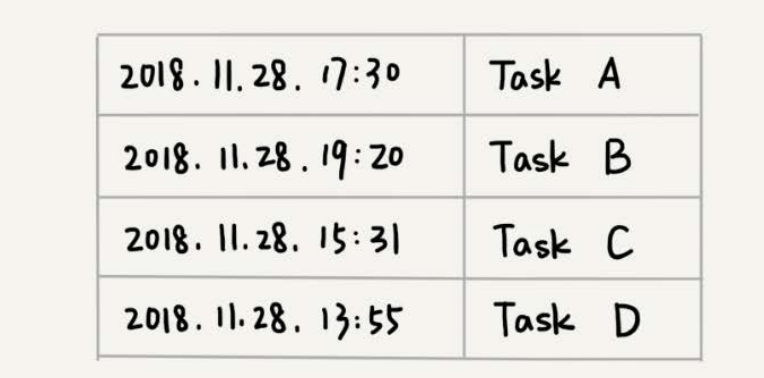 2018.11.28. 17:30 Task A
2018.11.28. 19:20 Task B
2018.11.28. 15:31 Task C
2018.11.28. 13:55 Task D